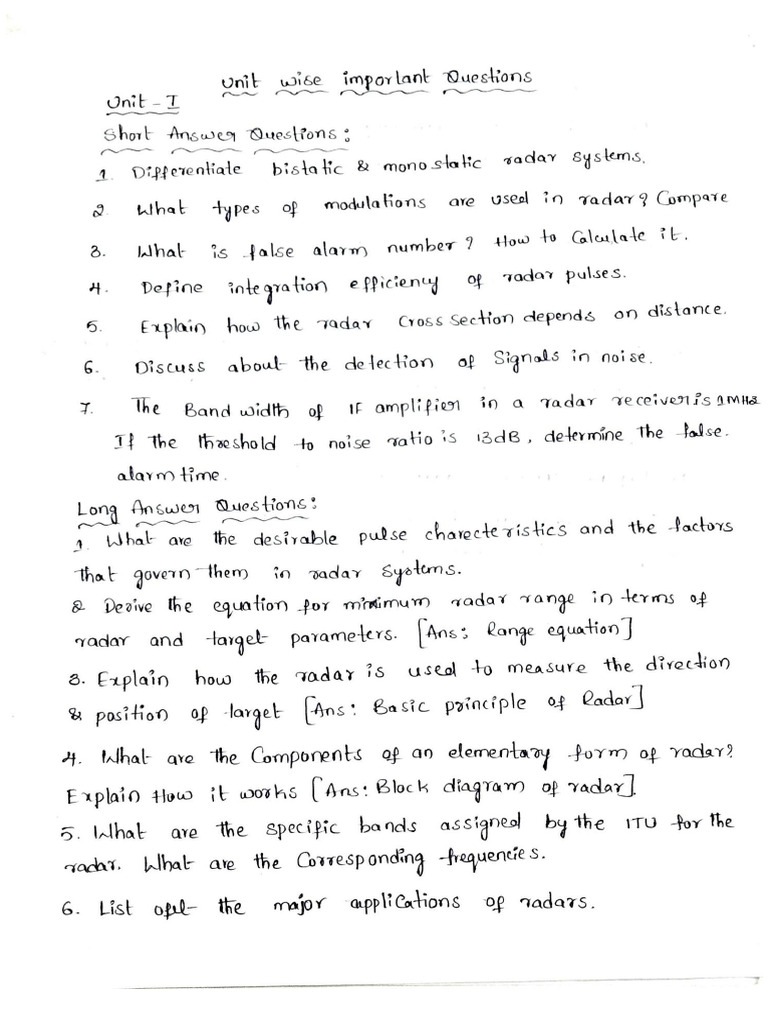 Unit wise important Questions
Unit - I
Short Answer Questions:
1. Differentiate bistatic & monostatic radar systems.
2. What types of modulations are used in radar? Compare
3. What is false alarm number? How to Calculate it.
4. Define integration efficiency of radar pulses.
5. Explain how the radar Cross section depends on distance.
6. Discuss about the detection of Signals in noise.
7. The Band width of IF amplifier in a radar receiver is 1MHz
If the threshold to noise ratio is 13dB, determine the false.
alarm time.
Long Answer Questions:
1. What are the desirable pulse charecteristics and the factors
that govern them in radar Systems.
2 Derive the equation for minimum radar range in terms of
radar and target parameters. [Ans: Range equation]
3. Explain how the radar is used to measure the direction
& position of target [Ans: Basic principle of Radar]
4. What are the Components of an elementary form of radar?
Explain How it works [Ans: Block diagram of radar].
5. What are the specific bands assigned by the ITU for the
radar. What are the Corresponding frequencies.
6. List the major applications of radars.